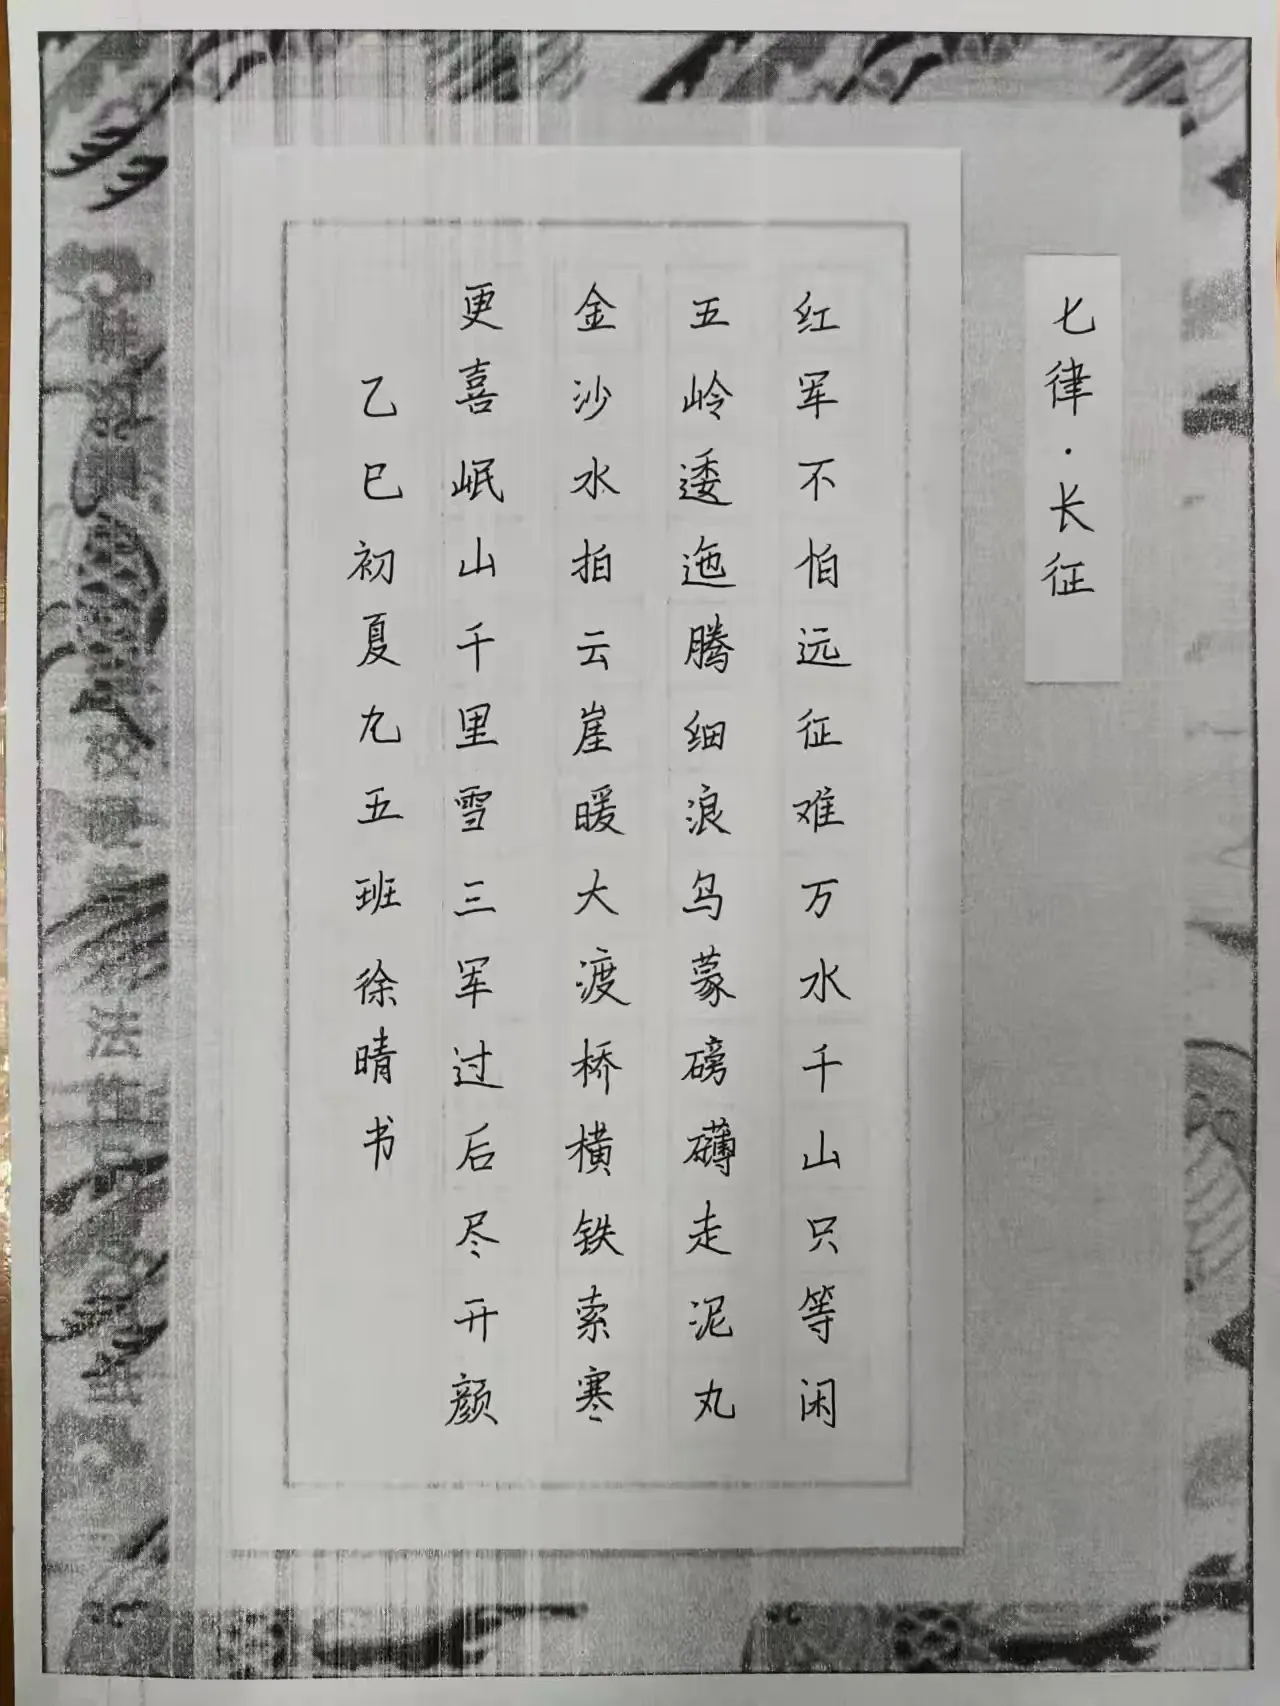 七律·长征
红军不怕远征难万水千山只等闲
五岭逶迤腾细浪乌蒙磅礴走泥丸
金沙水拍云崖暖大渡桥横铁索寒
更喜岷山千里雪三军过后尽开颜
乙巳初夏九五班徐晴书